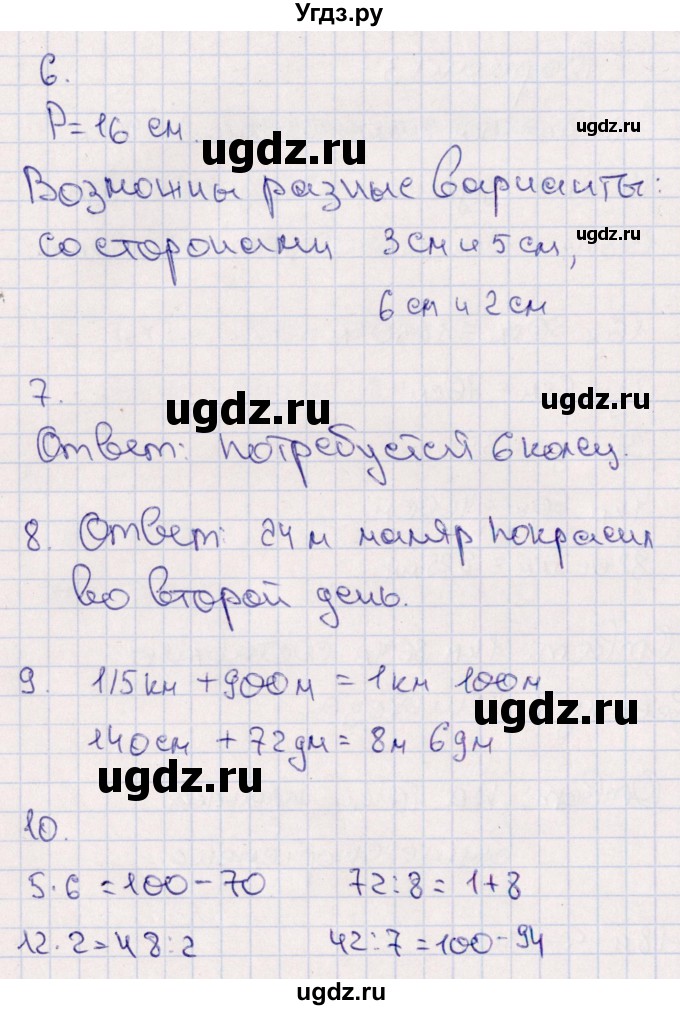 Угдз.ру
6.
P=16 см.
ugdz.ru
ugdz.ru
Возможны разные варианты:
ugdz.ru
со сторонами 3см и 5 см,
6 см и 2 см
7.
ugdz.ru
ugdz.ru
Ответ: потребуется 6 колец.
8. Ответ: 24 м маляр покрасил
ugdz.ru
во второй день.
9. 1/5км + 900м = 1км 100м
ugdz.ru
140см + 72дм = 8м 6дм
ugdz.ru
10.
5·6=100-70 72:8=1+8
12·2=48:2 42:7=100-94
ugdz.ru